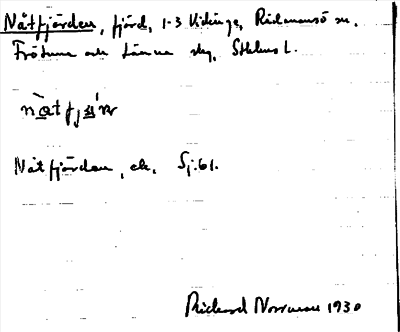 Nåtfjärden, fjärd, 1-3 Vidinge, Rådmansö sn,
Frötuna och Länna skg, Sthlms l.
Nåtfjärden, ek. Sj:61.
Rickard Norrman 1930